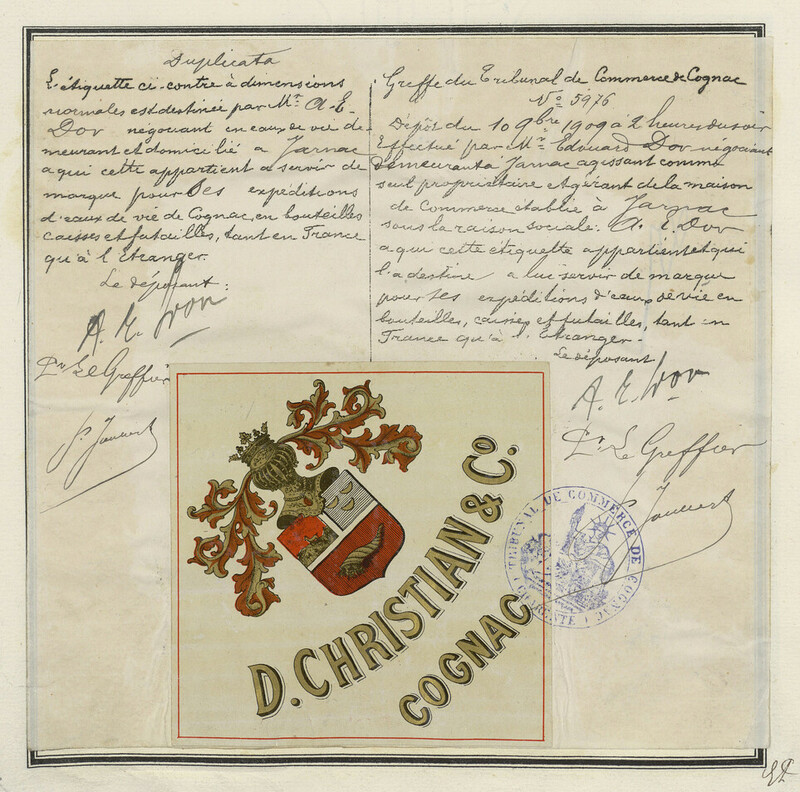 Duplicata
L'étiquette ci-contre à dimensions
normales est destinée par Mr. A. E.
Dor négociant en eaux de vie de-
meurant et domicilié a Jarnac
a qui cette appartient a servir de
marque pour ses expéditions
d'eaux de vie de Cognac, en bouteilles
caisses et futailles, tant en France
qu'à l'Etranger.
Le déposant:
A. E. Dor
Pr. Le Greffier
Greffe du Tribunal de Commerce de Cognac
No 5976
Dépôt du 10 9bre 1909 à 2 heures du soir
Effectué par Mr. Edouard Dor négociant
demeurant à Jarnac agissant comme
seul propriétaire et gérant de la maison
de Commerce établie à Jarnac
sous la raison sociale: A. E. Dor
a qui cette étiquette appartient et qui
l'a destine a lui servir de marque
pour ses expéditions d'eaux de vie en
bouteilles, caisses et futailles, tant en
France qu'à l'Etranger.
Le déposant
A. E. Dor
Pr. Le Greffier
D. CHRISTIAN & Co.
COGNAC
TRIBUNAL DE COMMERCE DE COGNAC
(CHARENTE)